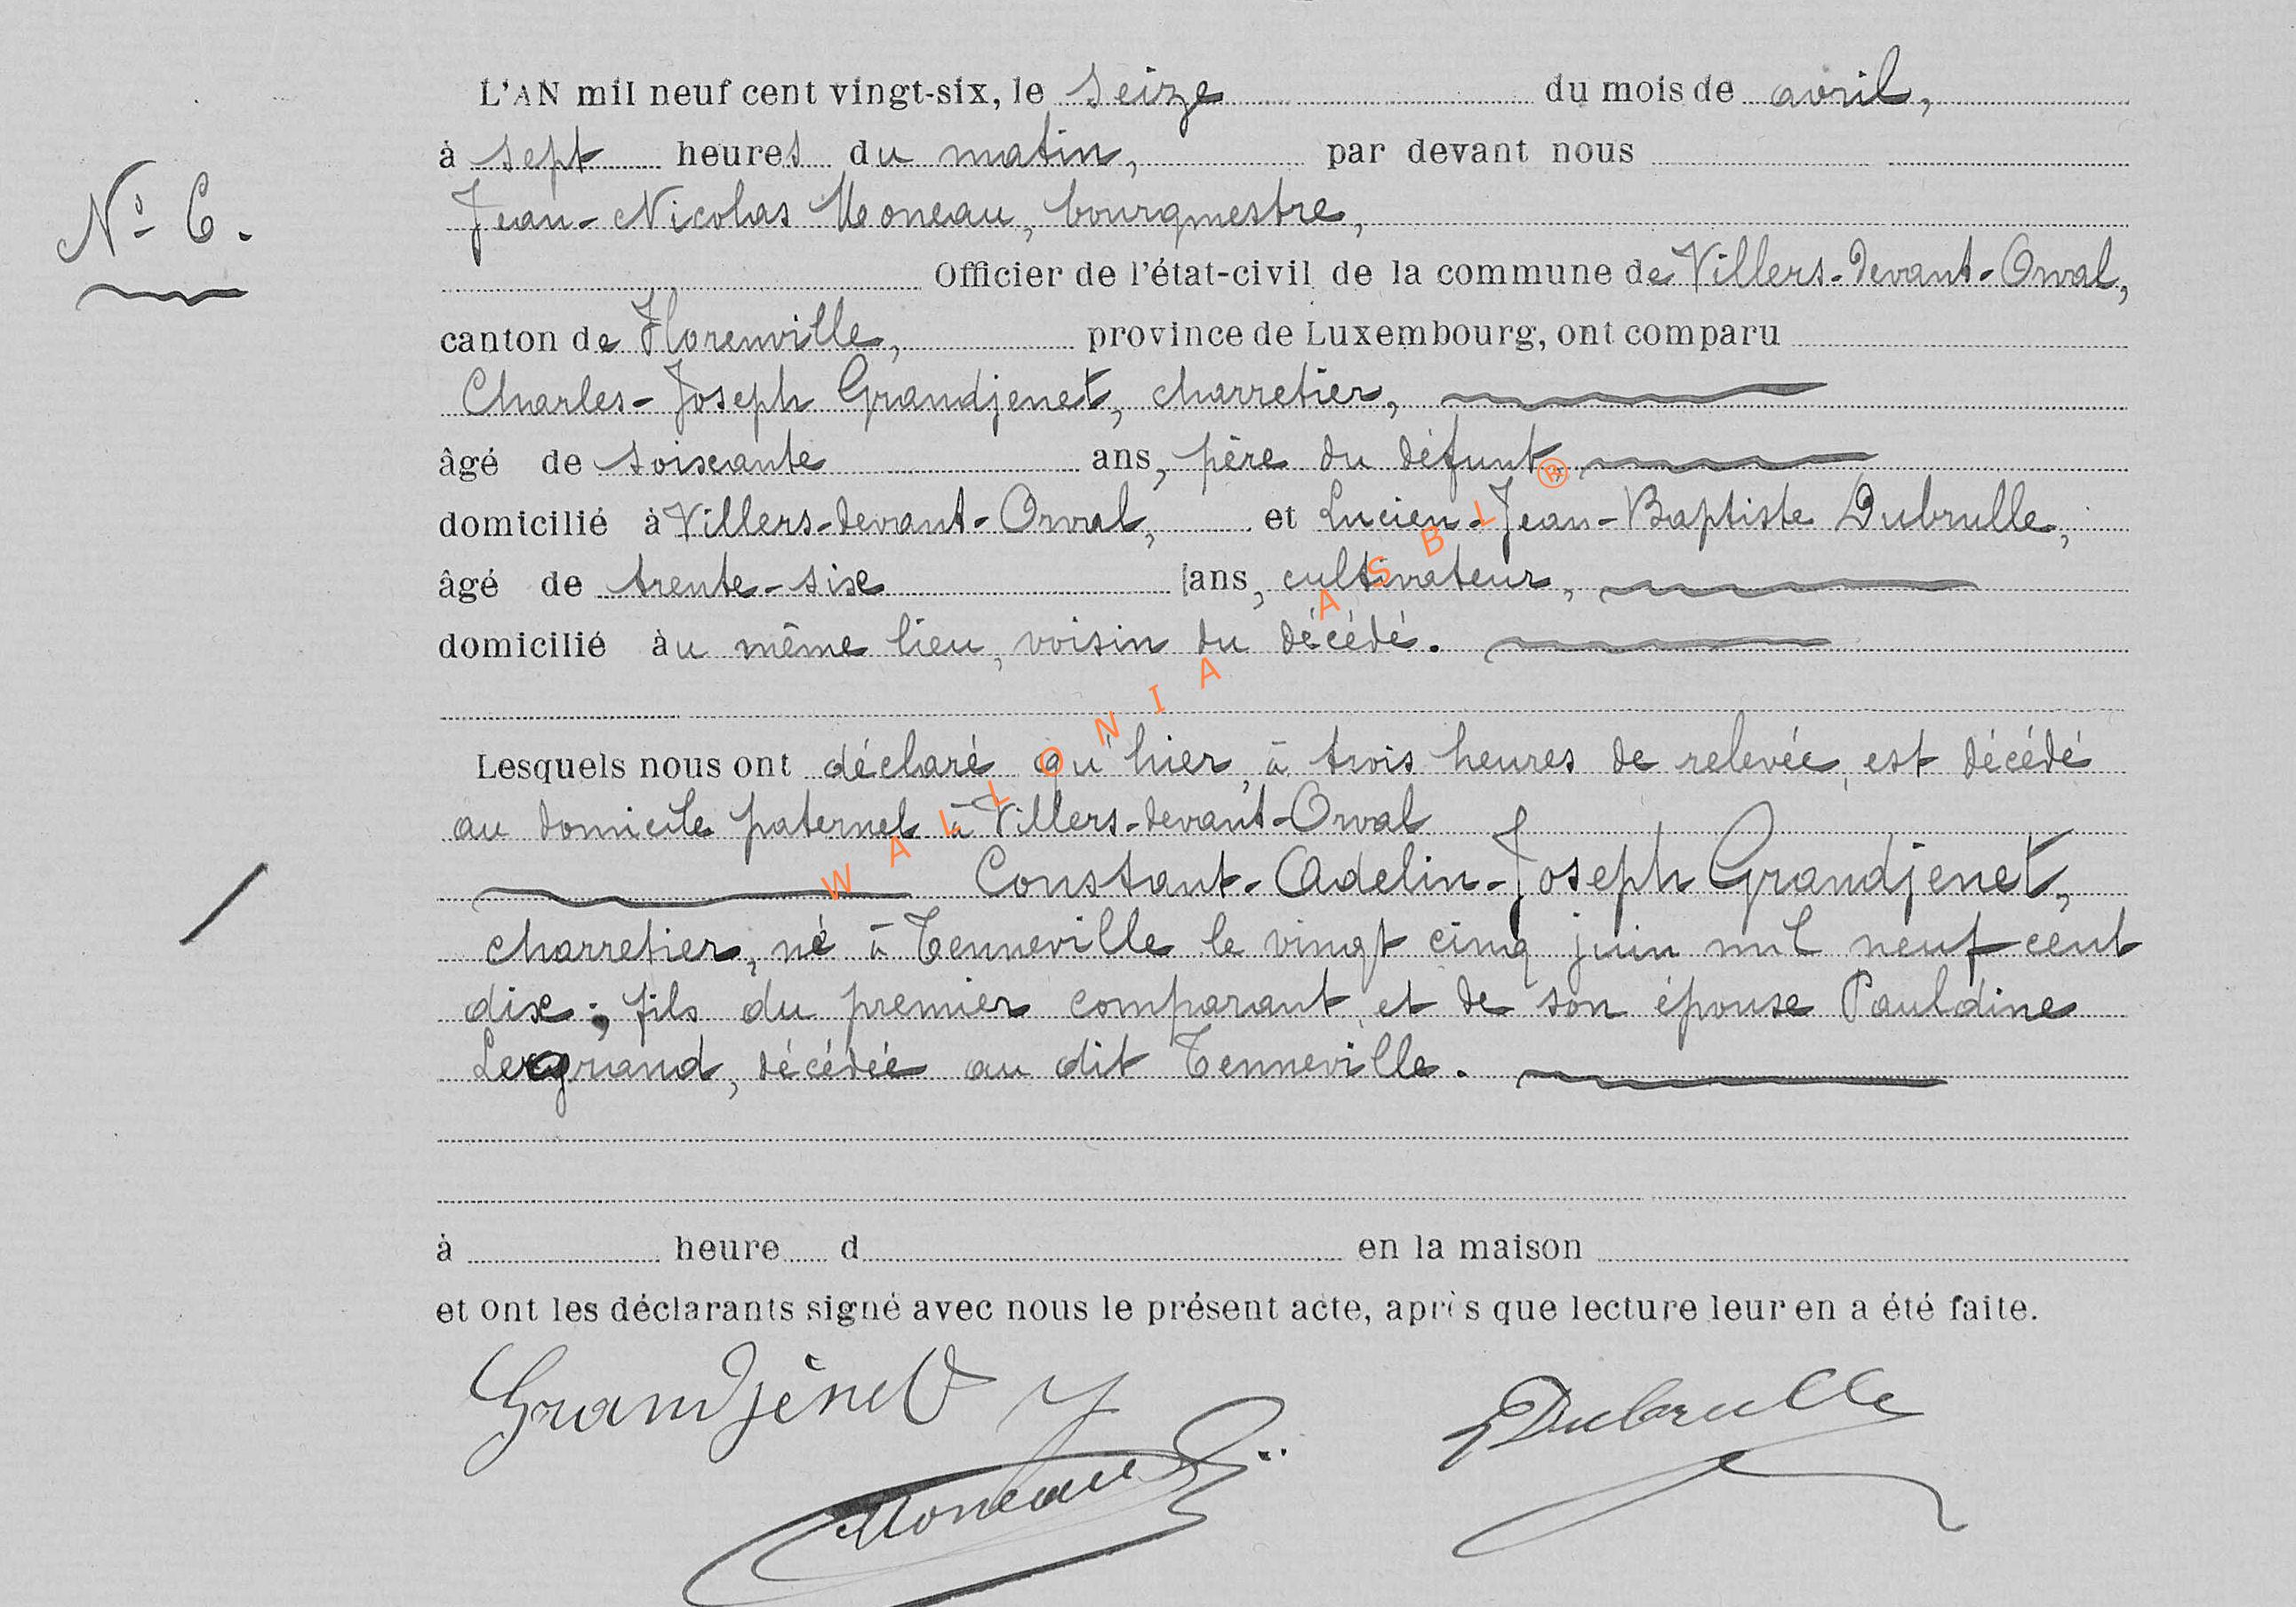 L'AN mil neuf cent vingt-six, le seize du mois de avril,
à sept heures du matin, par devant nous
N° 6.
Jean-Nicolas Moneau, bourgmestre,
Officier de l'état-civil de la commune de Villers-devant-Orval,
canton de Florenville, province de Luxembourg, ont comparu
Charles-Joseph Grandjenet, charretier,
âgé de soixante ans, père du défunt,
domicilié à Villers-devant-Orval, et Lucien-Jean-Baptiste Dubrulle,
âgé de trente-six ans, cultivateur,
domicilié àu même lieu, voisin du décédé.
Lesquels nous ont déclaré qu'hier, à trois heures de relevée, est décédé
au domicile paternel à Villers-devant-Orval
Constant-Adelin-Joseph Grandjenet,
charretier, né à Tenneville le vingt cinq juin mil neuf cent
dix; fils du premier comparant et de son épouse Pauldine
Legrand, décédée au dit Tenneville.
à heure d en la maison
et ont les déclarants signé avec nous le présent acte, après que lecture leur en a été faite.
Grandjenet
LDubrulle
Moneau
WALLONIA ASBL ®